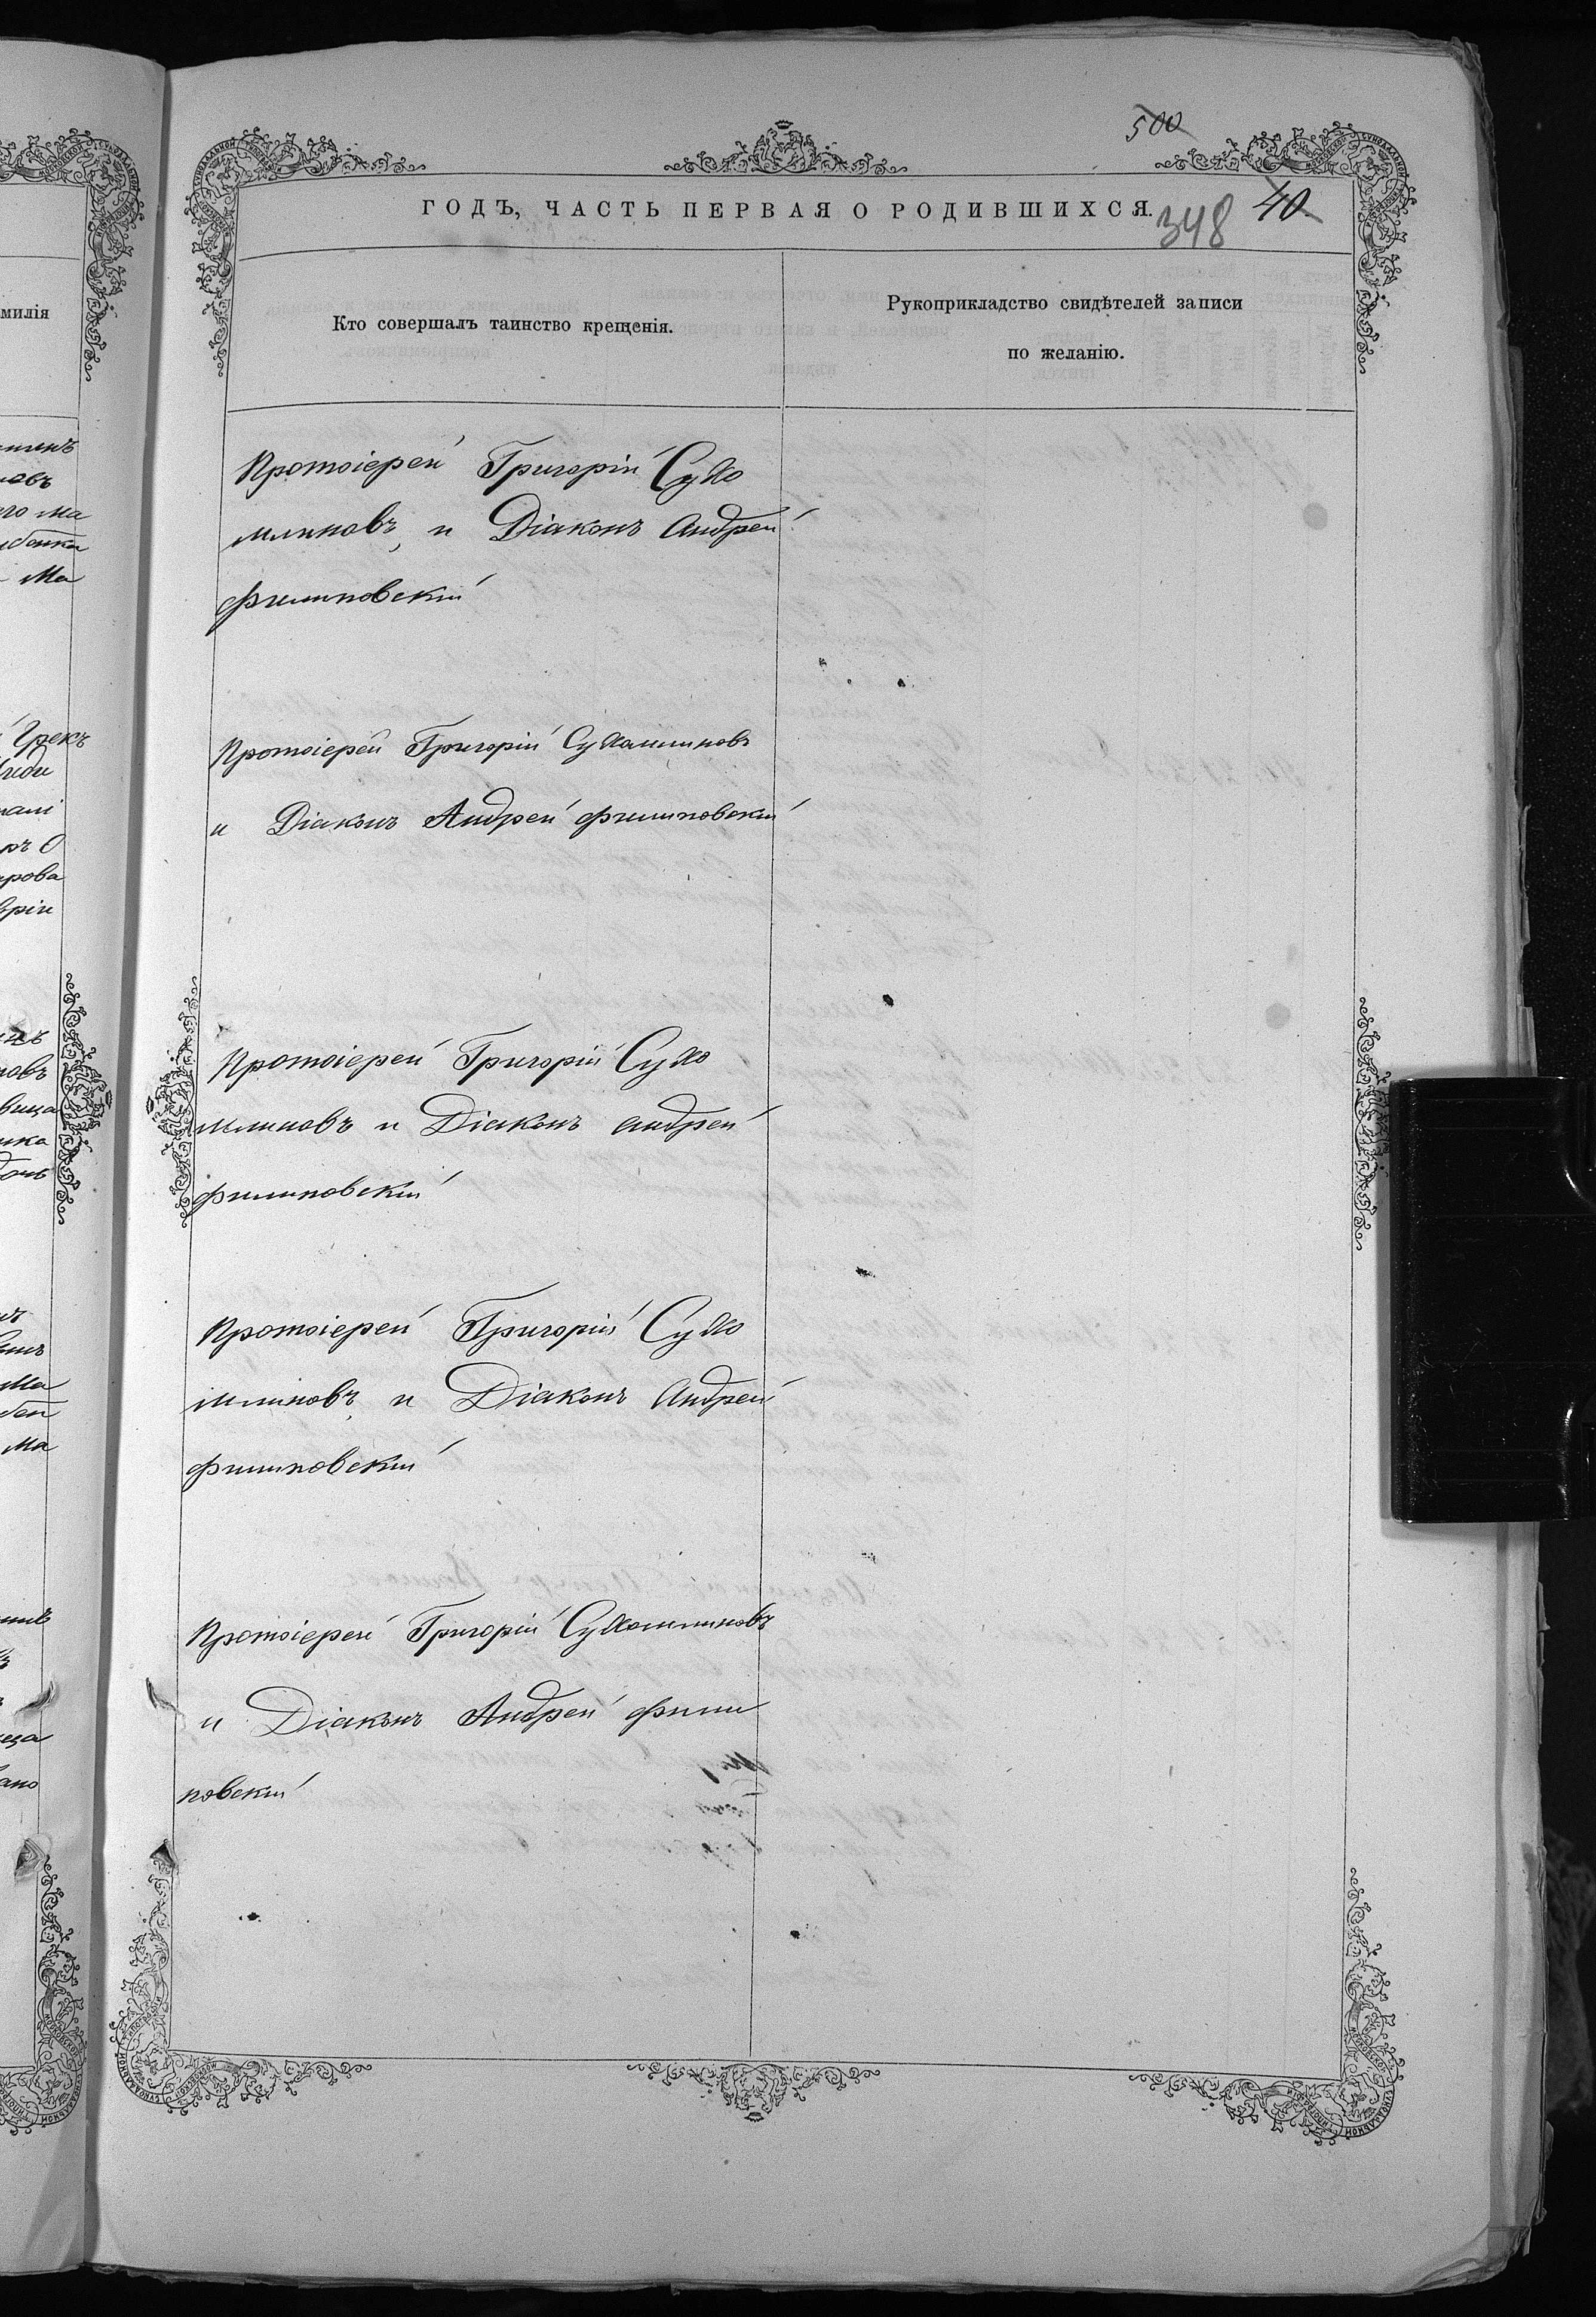 500
ГОДЪ, ЧАСТЬ ПЕРВАЯ О РОДИВШИХСЯ.
348 40
милія
Кто совершалъ таинство крещенія.
Рукоприкладство свидѣтелей записи
по желанію.
Протоіерей Григорій Сухо
млиновъ, и Діаконъ Андрей
Филиповскій
Протоіерей Григорій Сухомлиновъ
и Діаконъ Андрей Филиповскій
Протоіерей Григорій Сухо
млиновъ и Діаконъ Андрей
Филиповскій
Протоіерей Григорій Сухо
млиновъ, и Діаконъ Андрей
Филиповскій
Протоіерей Григорій Сухомлиновъ
и Діаконъ Андрей Фили
повскій